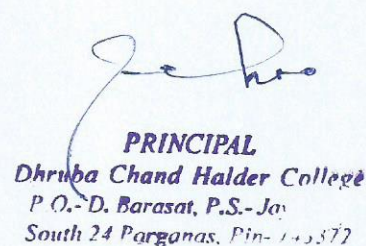 PRINCIPAL
Dhruba Chand Halder College
P.O.- D. Barasat, P.S.-
South 24 Parganas, Pin-